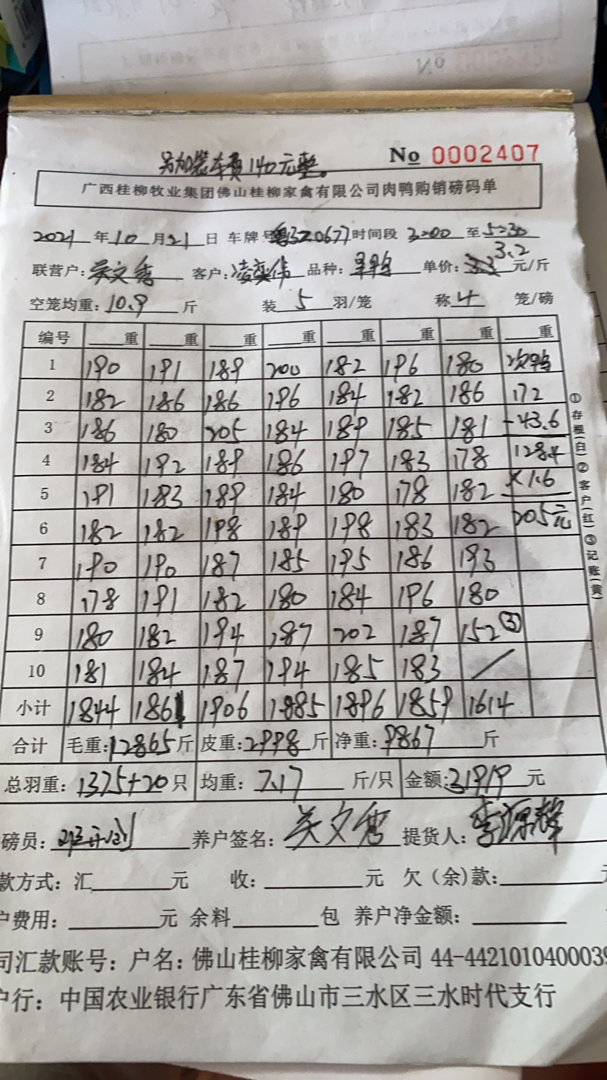 No 0002407
另加装车费140元整。
广西桂柳牧业集团佛山桂柳家禽有限公司肉鸭购销磅码单
2021年10月21日 车牌号 时间段 3:00 至 5:30
联营户:吴文秀 客户: 品种: 单价:3.2 元/斤
空笼均重:10.9 斤 装 5 羽/笼 称 4 笼/磅
编号 重 重 重 重 重 重 重 重
1 190 191 189 200 182 196 180 次鸭
2 182 186 186 196 184 182 186 172
3 186 180 205 184 189 185 181 -43.6
4 184 192 189 186 197 183 178 128.4
5 191 183 189 184 180 178 182 ×1.6
6 182 182 198 189 198 183 182 205元
7 190 190 187 185 195 186 193
8 178 191 182 180 184 196 180
9 180 182 194 187 202 187 152③
10 181 184 187 194 185 183 /
小计 1844 1861 1906 1885 1896 1859 1614
合计 毛重:12865斤 皮重:2998斤 净重:9867 斤
总羽重:1375+20只 均重:7.17 斤/只 金额:31919元
磅员: 养户签名:吴文秀 提货人:李源辉
款方式:汇 元 收: 元 欠(余)款: 元
户费用: 元 余料 包 养户净金额:
司汇款账号:户名:佛山桂柳家禽有限公司 44-4421010400039
户行:中国农业银行广东省佛山市三水区三水时代支行
①存根(白)②客户(红)③记账(黄)